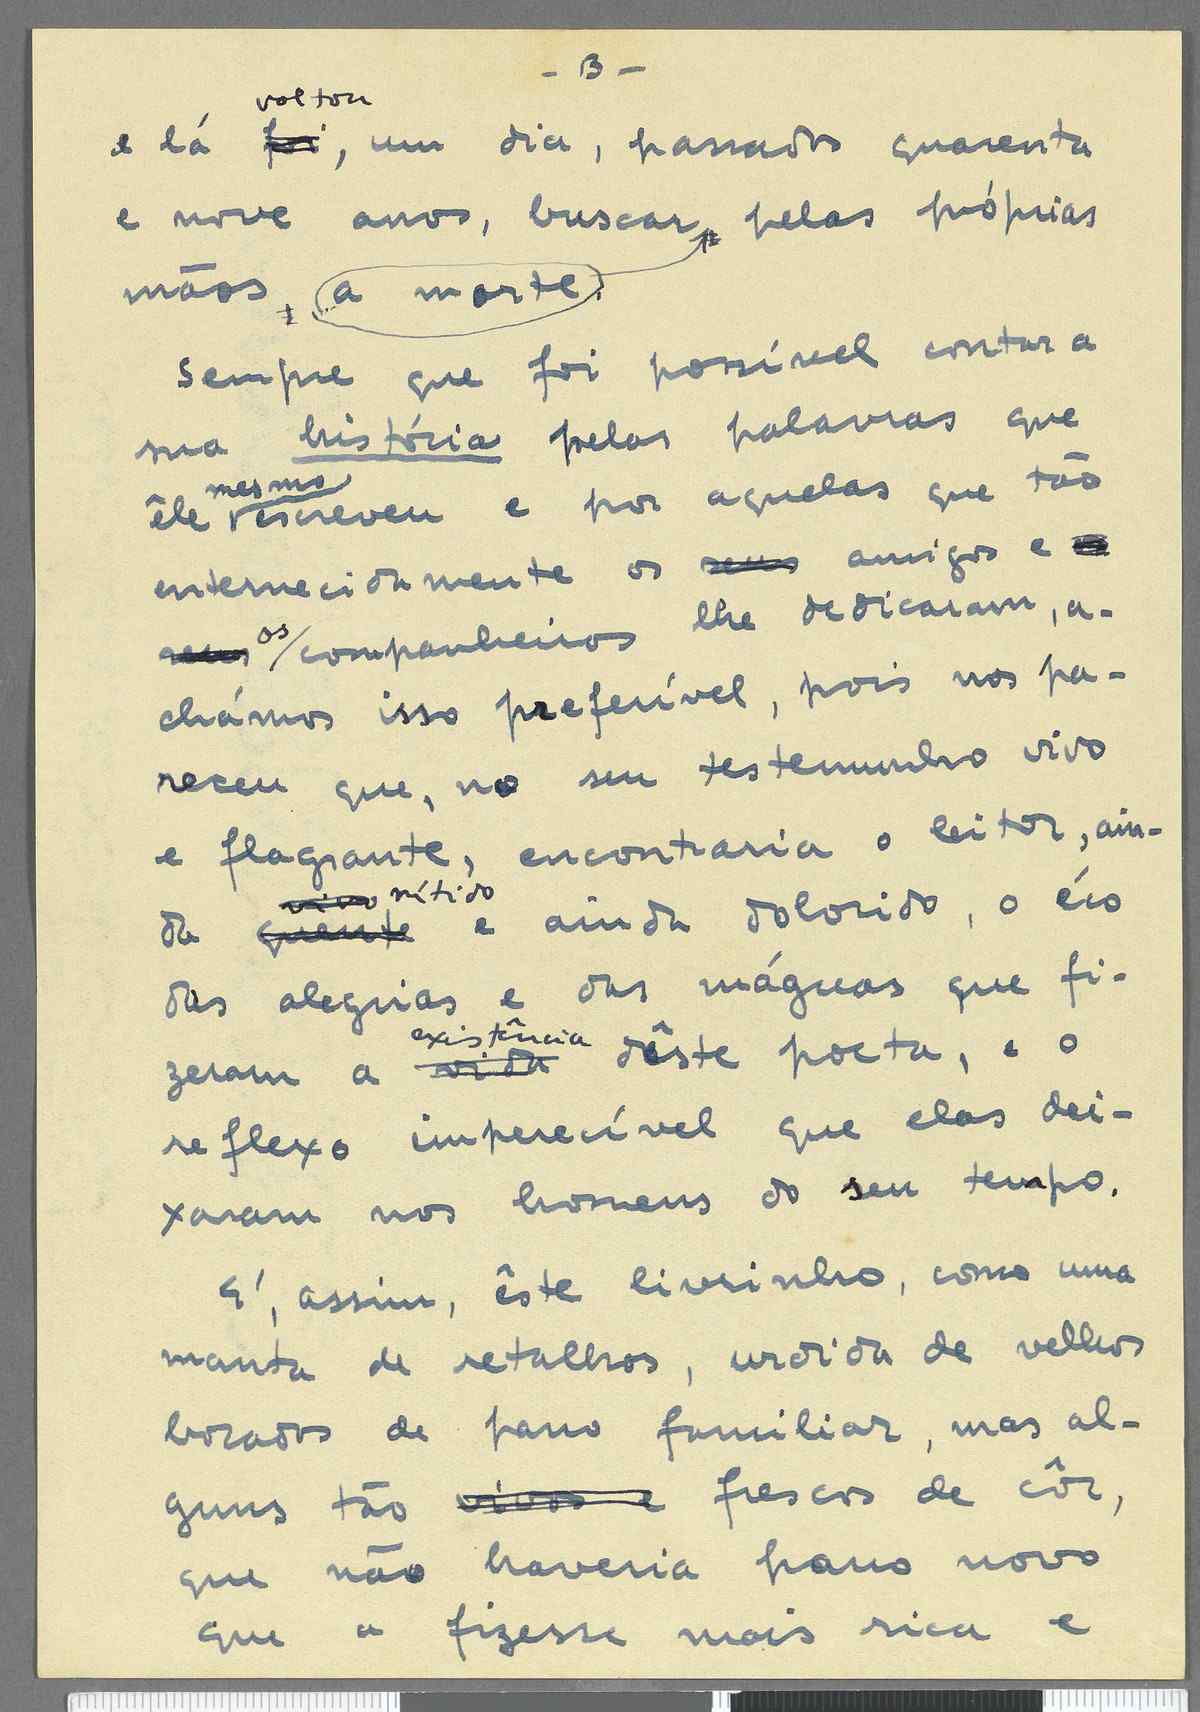 - 3 -
voltou
e lá foi, um dia, passados quarenta
e nove anos, buscar, pelas próprias
mãos, a morte.
Sempre que foi possível contar a
sua história pelas palavras que
mesmo
êle escreveu e por aquelas que tão
enternecidamente os seus amigos e
seus os companheiros lhe dedicaram, a-
chámos isso preferível, pois nos pa-
receu que, no seu testemunho vivo
e flagrante, encontraria o leitor, ain-
vivo nítido
da quente e ainda dolorido, o éco
das alegrias e das máguas que fi-
existência
zeram a vida dêste poeta, e o
reflexo imperecível que elas dei-
xaram nos homens do seu tempo.
E', assim, êste livrinho, como uma
manta de retalhos, urdida de velhos
bocados de pano familiar, mas al-
guns tão vivos e frescos de côr,
que não haveria pano novo
que a fizesse mais rica e